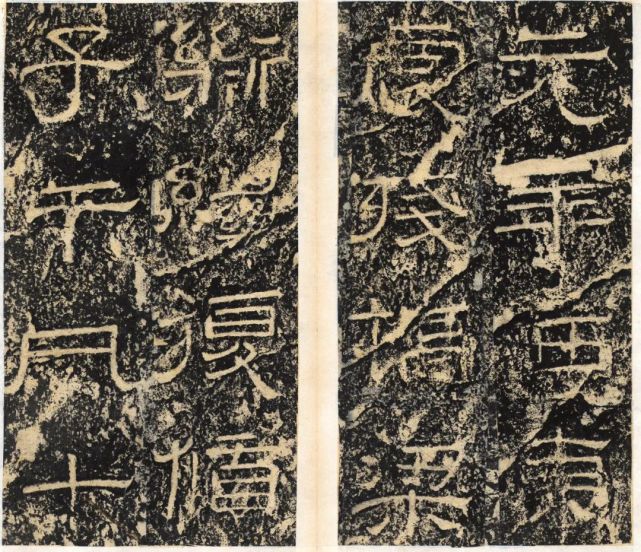 元年西夷
虐殘橋梁
斷絕復循
子午凡十